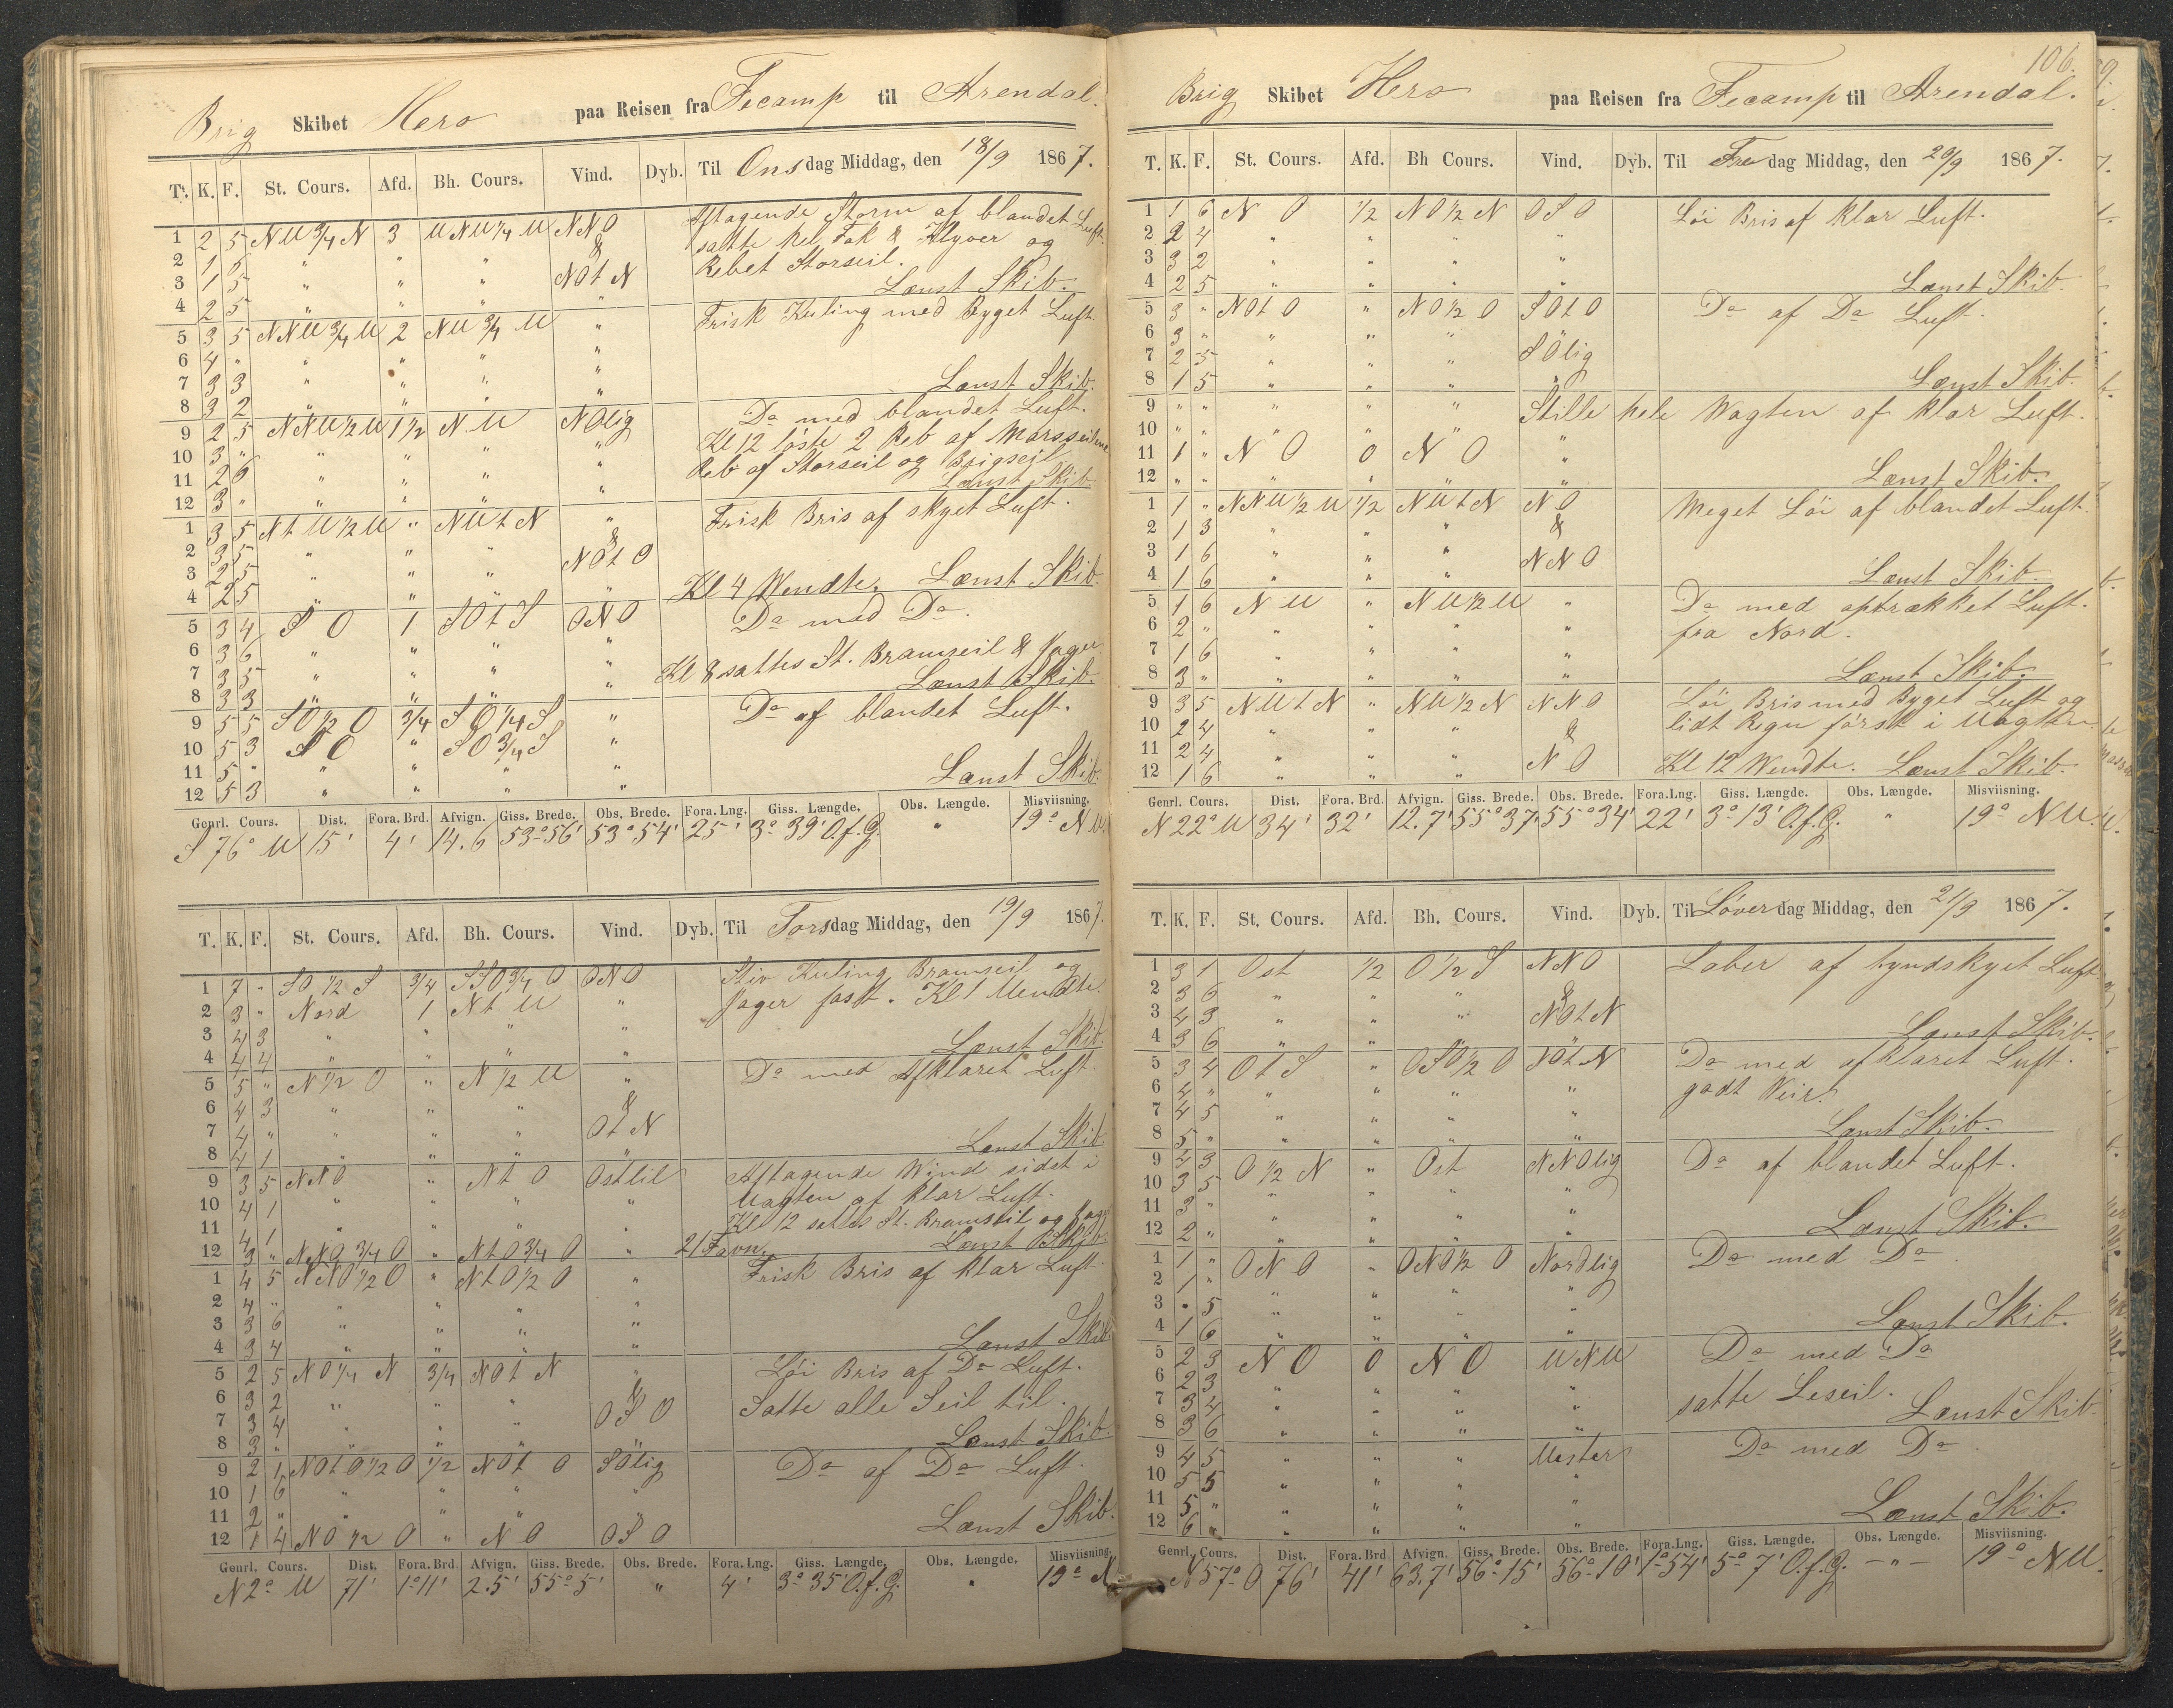 Brig Skibet Hero paa Reisen fra Fecamp til Arendal.
T. K. F. St. Cours. Afd. Bh. Cours. Vind. Dyb. Til Onsdag Middag, den 18/9 1867.
1 2 5 NW 3/4 N 3 WNW 1/4 W NNO Aftagende Storm af blandet Luft.
2 1 5 " " " & satte hel Fok & Klyver og
3 1 5 " " " NOt N Rebet Storseil.
4 2 5 " " " " Lænst Skib.
5 3 5 NNW 3/4 W 2 NW 3/4 W " Frisk Kuling med Byget Luft.
6 4 " " " " "
7 3 3 " " " "
8 3 2 " " " " Lænst Skib.
9 2 5 NNW 1/2 W 1 1/2 N W NOlig Do med blandet Luft.
10 3 " " " " " Kl 12 løste 2 Reb af Marsseilene
11 2 6 " " " " Reb af Storseil og Brigseil
12 3 " " " " " Lænst Skib
1 3 5 Nt W 1/2 W " NWt N " Frisk Bris af skyet Luft.
2 3 5 " " " &
3 2 5 " " " NOt O
4 2 5 " " " " Kl 4 Wendte. Lænst Skib.
5 3 4 S O 1 SOt S ONO Do med Do
6 3 6 " " " "
7 3 5 " " " " Kl 8 sattes St. Bramseil & Jager
8 3 3 " " " " Lænst Skib.
9 5 5 SO 1/2 O 3/4 SO 1/4 S " Do af blandet Luft.
10 5 3 S O " SO 3/4 S "
11 5 " " " " "
12 5 3 " " " " Lænst Skib.
Genrl. Cours. Dist. Fora. Brd. Afvign. Giss. Brede. Obs. Brede. Fora. Lng. Giss. Længde. Obs. Længde. Misviisning.
S 76° W 15' 4' 14.6 53°56' 53°54' 25' 3° 39' O.f.G. " 19° NW
T. K. F. St. Cours. Afd. Bh. Cours. Vind. Dyb. Til Torsdag Middag, den 19/9 1867.
1 7 " SO 1/2 S 3/4 SSO 3/4 O ONO Stiv Kuling Bramseil og
2 3 " Nord 1 Nt W " Jager fast. Kl 1 Wendte.
3 4 3 " " " "
4 4 4 " " " " Lænst Skib.
5 5 " N 1/2 O " N 1/2 W " Do med Afklaret Luft.
6 4 3 " " " &
7 4 " " " " Ot N
8 4 1 " " " " Lænst Skib
9 3 5 NNO " Nt O Ostlil Aftagende Wind sidst i
10 4 1 " " " " Wagten af klar Luft.
11 4 1 " " " " Kl 12 sattes St. Bramseil og Jager
12 3 " NNO 3/4 O " NtO 3/4 O " 21 Favn. Lænst Skib.
1 4 5 NNO 1/2 O " NtO 1/2 O " Frisk Bris af klar Luft.
2 4 " " " " "
3 3 6 " " " "
4 3 4 " " " " Lænst Skib
5 2 5 NO 1/4 N 3/4 NOt N " Løi Bris af Do Luft.
6 3 2 " " " & Satte alle Seil til.
7 3 4 " " " OSO
8 3 " " " " " Lænst Skib.
9 2 1 NOtO 1/2 O 1/2 NOt O SOlig Do af Do Luft.
10 1 6 " " " "
11 2 " " " " "
12 1 4 NO 1/2 O " N O OSO Lænst Skib.
Genrl. Cours. Dist. Fora. Brd. Afvign. Giss. Brede. Obs. Brede. Fora. Lng. Giss. Længde. Obs. Længde. Misviisning.
N 2° W 71' 1°11' 2.5' 55°5' " 4' 3° 35' O.f.G. " 19° N
106.
Brig Skibet Hero paa Reisen fra Fecamp til Arendal.
T. K. F. St. Cours. Afd. Bh Cours. Vind. Dyb. Til Fredag Middag, den 20/9 1867.
1 1 6 N O 1/2 NO 1/2 N OSO Løi Bris af klar Luft.
2 2 4 " " " "
3 3 2 " " " "
4 2 5 " " " " Lænst Skib.
5 3 " NOt O " NO 1/2 O SOt O Do af Do Luft.
6 3 " " " "
7 2 5 " " " SOlig
8 1 5 " " " " Lænst Skib.
9 " " " " " Stille hele Wagten af klar Luft.
10 " " " " "
11 1 " N O 0 N O "
12 " " " " " " Lænst Skib.
1 1 " NNW 1/2 W 1/2 NWt N N O Meget Løi af blandet Luft.
2 1 3 " " " &
3 1 6 " " " NNO
4 1 6 " " " Lænst Skib.
5 1 6 N W " NW 1/2 W " Do med optrækket Luft.
6 2 " " " " " fra Nord.
7 1 6 " " " "
8 3 " " " " " Lænst Skib.
9 3 5 NWt N " NW 1/2 N NNO Løi Bris med Byget Luft og
10 2 4 " " " & lidt Regn først i Wagten.
11 2 4 " " " N O
12 1 6 " " " Kl 12 Wendte. Lænst Skib.
Genrl. Cours. Dist. Fora. Brd. Afvign. Giss. Brede. Obs. Brede. Fora. Lng. Giss. Længde. Obs. Længde. Misviisning.
N 22° W 34' 32' 12.7' 55°37' 55°34' 22' 3° 13' O.f.G. " 19° NW.
T. K. F. St. Cours. Afd. Bh. Cours. Vind. Dyb. Til Løverdag Middag, den 21/9 1867.
1 3 1 Ost 1/2 O 1/2 S NNO Laber af tyndskyet Luft
2 3 6 " " " &
3 4 3 " " " NOt N
4 3 6 " " " " Lænst Skib.
5 3 4 Ot S " OSO 1/2 O NOt N Do med afklaret Luft.
6 4 " " " " " godt Veir.
7 4 5 " " " "
8 5 " " " " " Lænst Skib.
9 4 3 O 1/2 N " Ost NNOlig Do af blandet Luft.
10 3 5 " " " "
11 3 " " " " "
12 2 " " " " " Lænst Skib.
1 1 " ONO " ONO 1/2 O Nordlig Do med Do
2 1 " " " " "
3 " 5 " " " "
4 1 6 " " " " Lænst Skib.
5 2 3 N O 0 N O WNW Do med Do
6 2 3 " " " "
7 3 4 " " " " satte Leseil.
8 3 6 " " " " Lænst Skib
9 4 5 " " " Wester Do med Do
10 5 5 " " " "
11 5 " " " " "
12 6 " " " " Lænst Skib.
Genrl. Cours. Dist. Fora. Brd Afvign. Giss. Brede. Obs. Brede. Fora. Lng. Giss. Længde. Obs. Længde. Misviisning.
N 57° O 76' 41' 63.7' 56°15' 56°10' 1°54' 5° 7' O.f.G. -"- 19° NW.